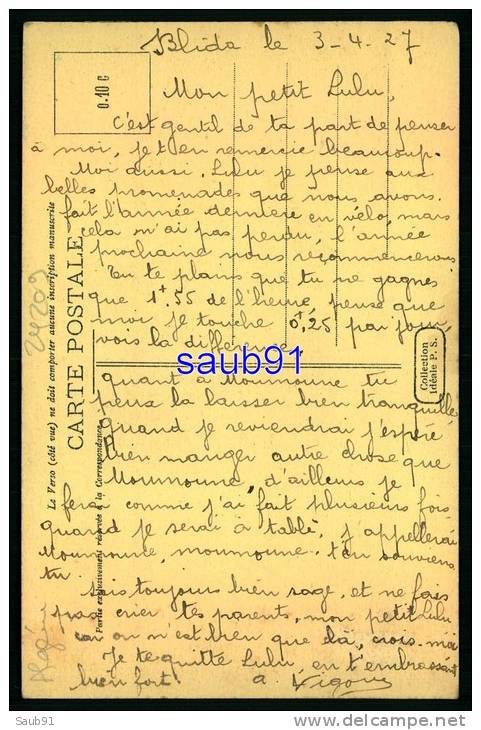 Blida le 3-4-27
0.10 c
Mon petit Lulu,
C'est gentil de ta part de penser
à moi, je t'en remercie beaucoup.
Moi aussi, Lulu je pense aux
belles promenades que nous avons
fait l'année dernière en vélo, mais
cela n'ai pas perdu, l'année
prochaine nous recommencerons
Tu te plains que tu ne gagnes
que 1f.55 de l'heure, pense que
moi je touche 0f,25 par jour
vois la différence,
saub91
quant à Moumoune tu
peux la laisser bien tranquille
quand je reviendrai j'espère
bien manger autre chose que
Moumoune, d'ailleurs je
ferai comme j'ai fait plusieurs fois
quand je serai à table, j'appellerai
Moumoune, moumoune. t'en souviens
tu.
Sois toujours bien sage, et ne fais
pas crier tes parents, mon petit Lulu
car on n'est bien que là, crois-moi
Je te quitte Lulu, en t'embrassant
bien fort.
CARTE POSTALE
Le Verso (côté vue) ne doit comporter aucune inscription manuscrite
Partie exclusivement réservée à la Correspondance
Collection
Idéale P. S.
24209
Saub91
www.delcampe.net